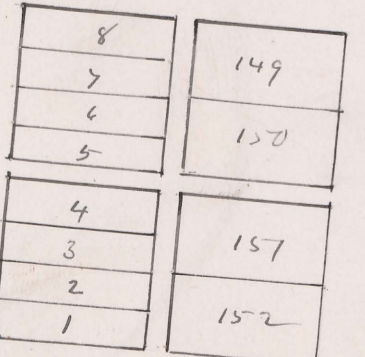 8
7
6
5
149
150
4
3
2
1
157
152